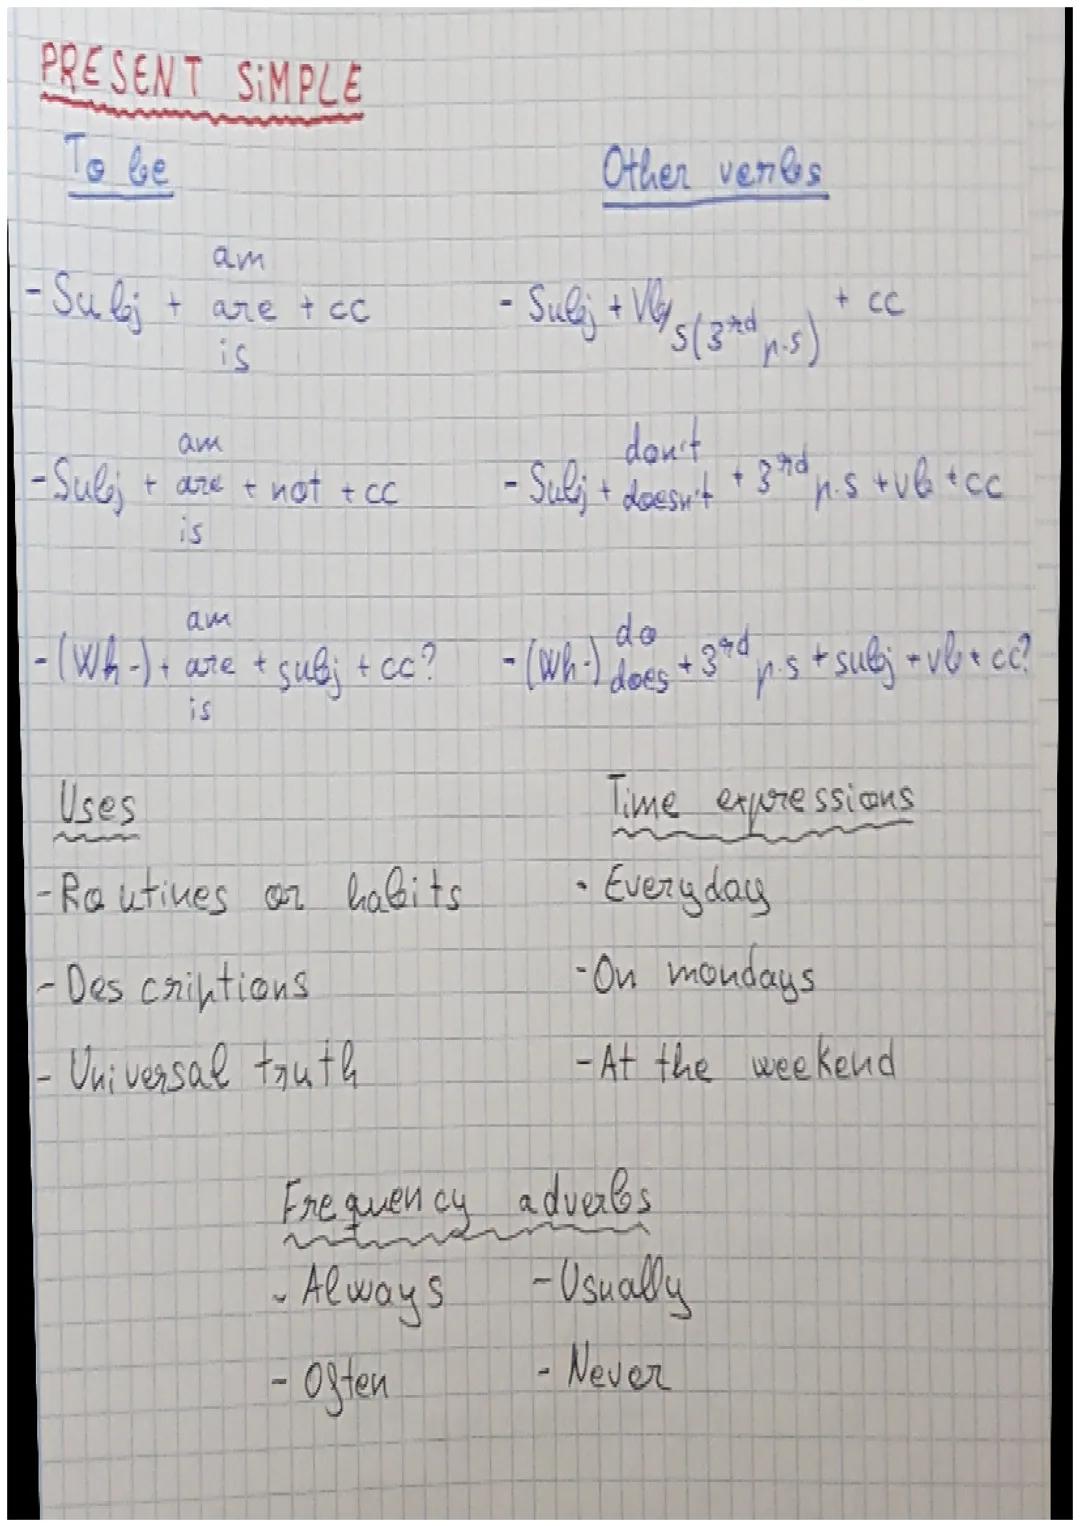 PRESENT SiMPLE
To be
Other verbs
am
-Subj + are + cc
is
- Subj + Vb/s(3rd p.s) + cc
am
-Subj + are + not + cc
is
don't
- Subj + doesn't + 3rd p.s + vb + cc
am
-(Wh-) + are + subj + cc?
is
do
-(Wh-) does + 3rd p.s + subj + vb + cc?
Uses
Time expressions
-Routines or habits
- Everyday
-Descriptions
-On mondays
- Universal truth
-At the weekend
Frequency adverbs
- Always
-Usually
- Often
- Never